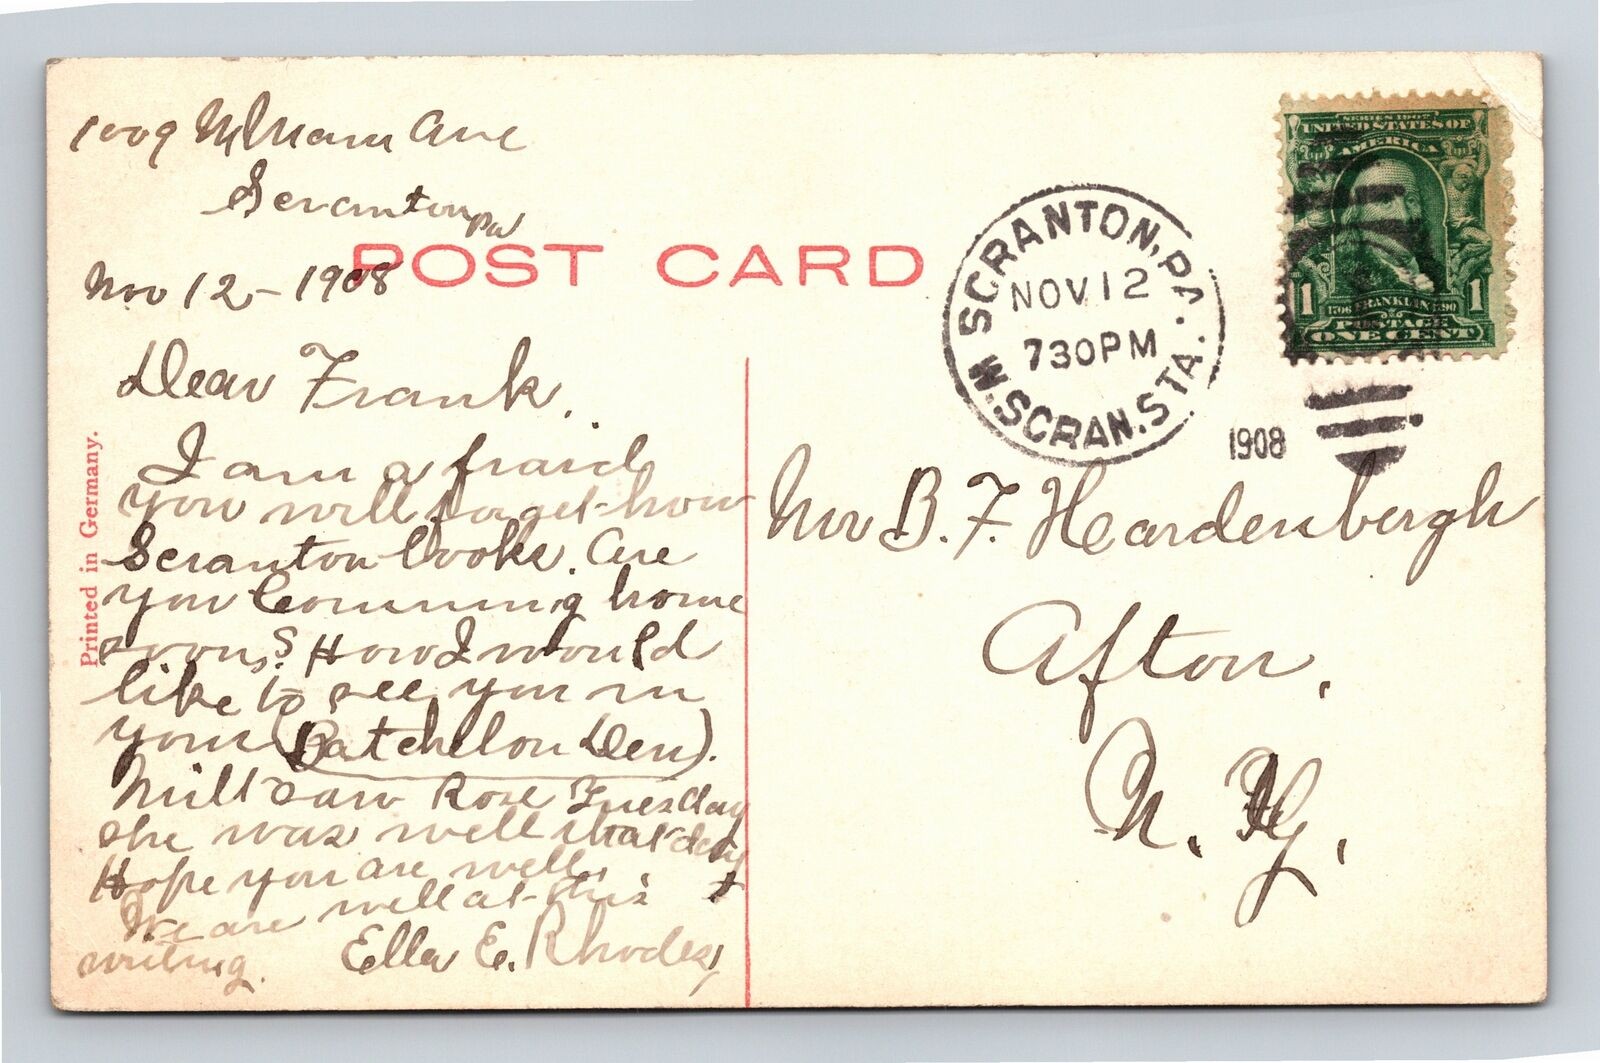 1009 Ave
Scranton
Pa
POST CARD
Nov 12 - 1908
Dear Frank.
I am a fraid
you will forget how
Scranton looks. Are
you Comming home
soon? How I would
like to see you in
your (Batchelor Den).
Will saw Rose Tuesday
she was well that day
Hope you are well,
We are well at this
writing.
Ella E. Rhodes,
Printed in Germany.
SCRANTON, PA.
NOV 12
730PM
N. SCRAN. STA.
1908
SERIES 1902
UNITED STATES OF
AMERICA
1 FRANKLIN 1
1706 1790
POSTAGE
ONE CENT
Mr B. F. Hardenbergh
Afton,
N. Y.,